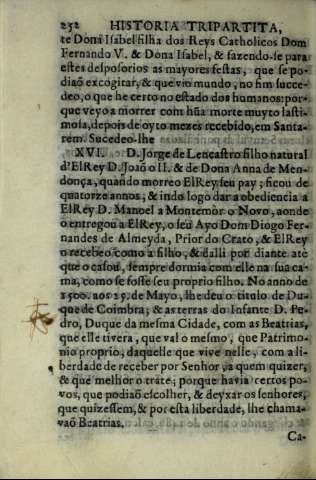 252 HISTORIA TRIPARTITA,
te Dona Isabel filha dos Reys Catholicos Dom
Fernando V. & Dona Isabel, & fazendo-se para
estes desposorios as mayores festas, que se po-
diaõ excogitar, & que vio mundo, no fim succe-
deo, o que he certo no estado dos humanos: por-
que veyo a morrer com hũa morte muyto lasti-
mosa, depois de oyto mezes recebido, em Santa-
rem. Sucedeo-lhe
XVI. D. Jorge de Lencastro filho natural
d'ElRey D. Joaõ II. & de Dona Anna de Men-
donça, quando morreo ElRey seu pay; ficou de
quatorze annos; & indo logo dar a obediencia a
ElRey D. Manoel a Montemòr o Novo, aonde
o entregou a ElRey, o seu Ayo Dom Diogo Fer-
nandes de Almeyda, Prior do Crato, & ElRey
o recebeo como a filho, & dalli por diante atè
que o casou, sempre dormia com elle na sua ca-
ma, como se fosse seu proprio filho. No anno de
1500. aos 25. de Mayo, lhe deu o titulo de Du-
que de Coimbra; & as terras do Infante D. Pe-
dro, Duque da mesma Cidade, com as Beatrias,
que elle tivera, que val o mesmo, que Patrimo-
nio proprio, daquelle que vive nelle, com a li-
berdade de receber por Senhor, a quem quizer,
& que melhor o trate; porque havia certos po-
vos, que podiaõ escolher, & deyxar os senhores,
que quizessem, & por esta liberdade, lhe chama-
vaõ Beatrias.
Ca-